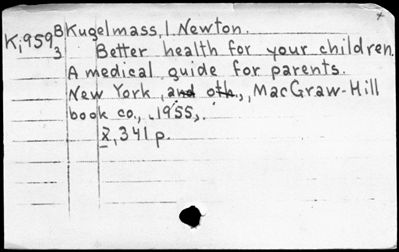 K,959,B Kugelmass, I. Newton.
3 Better health for your children.
A medical guide for parents.
New York, and oth., MacGraw-Hill
book co., 1955,.
X, 341 p.